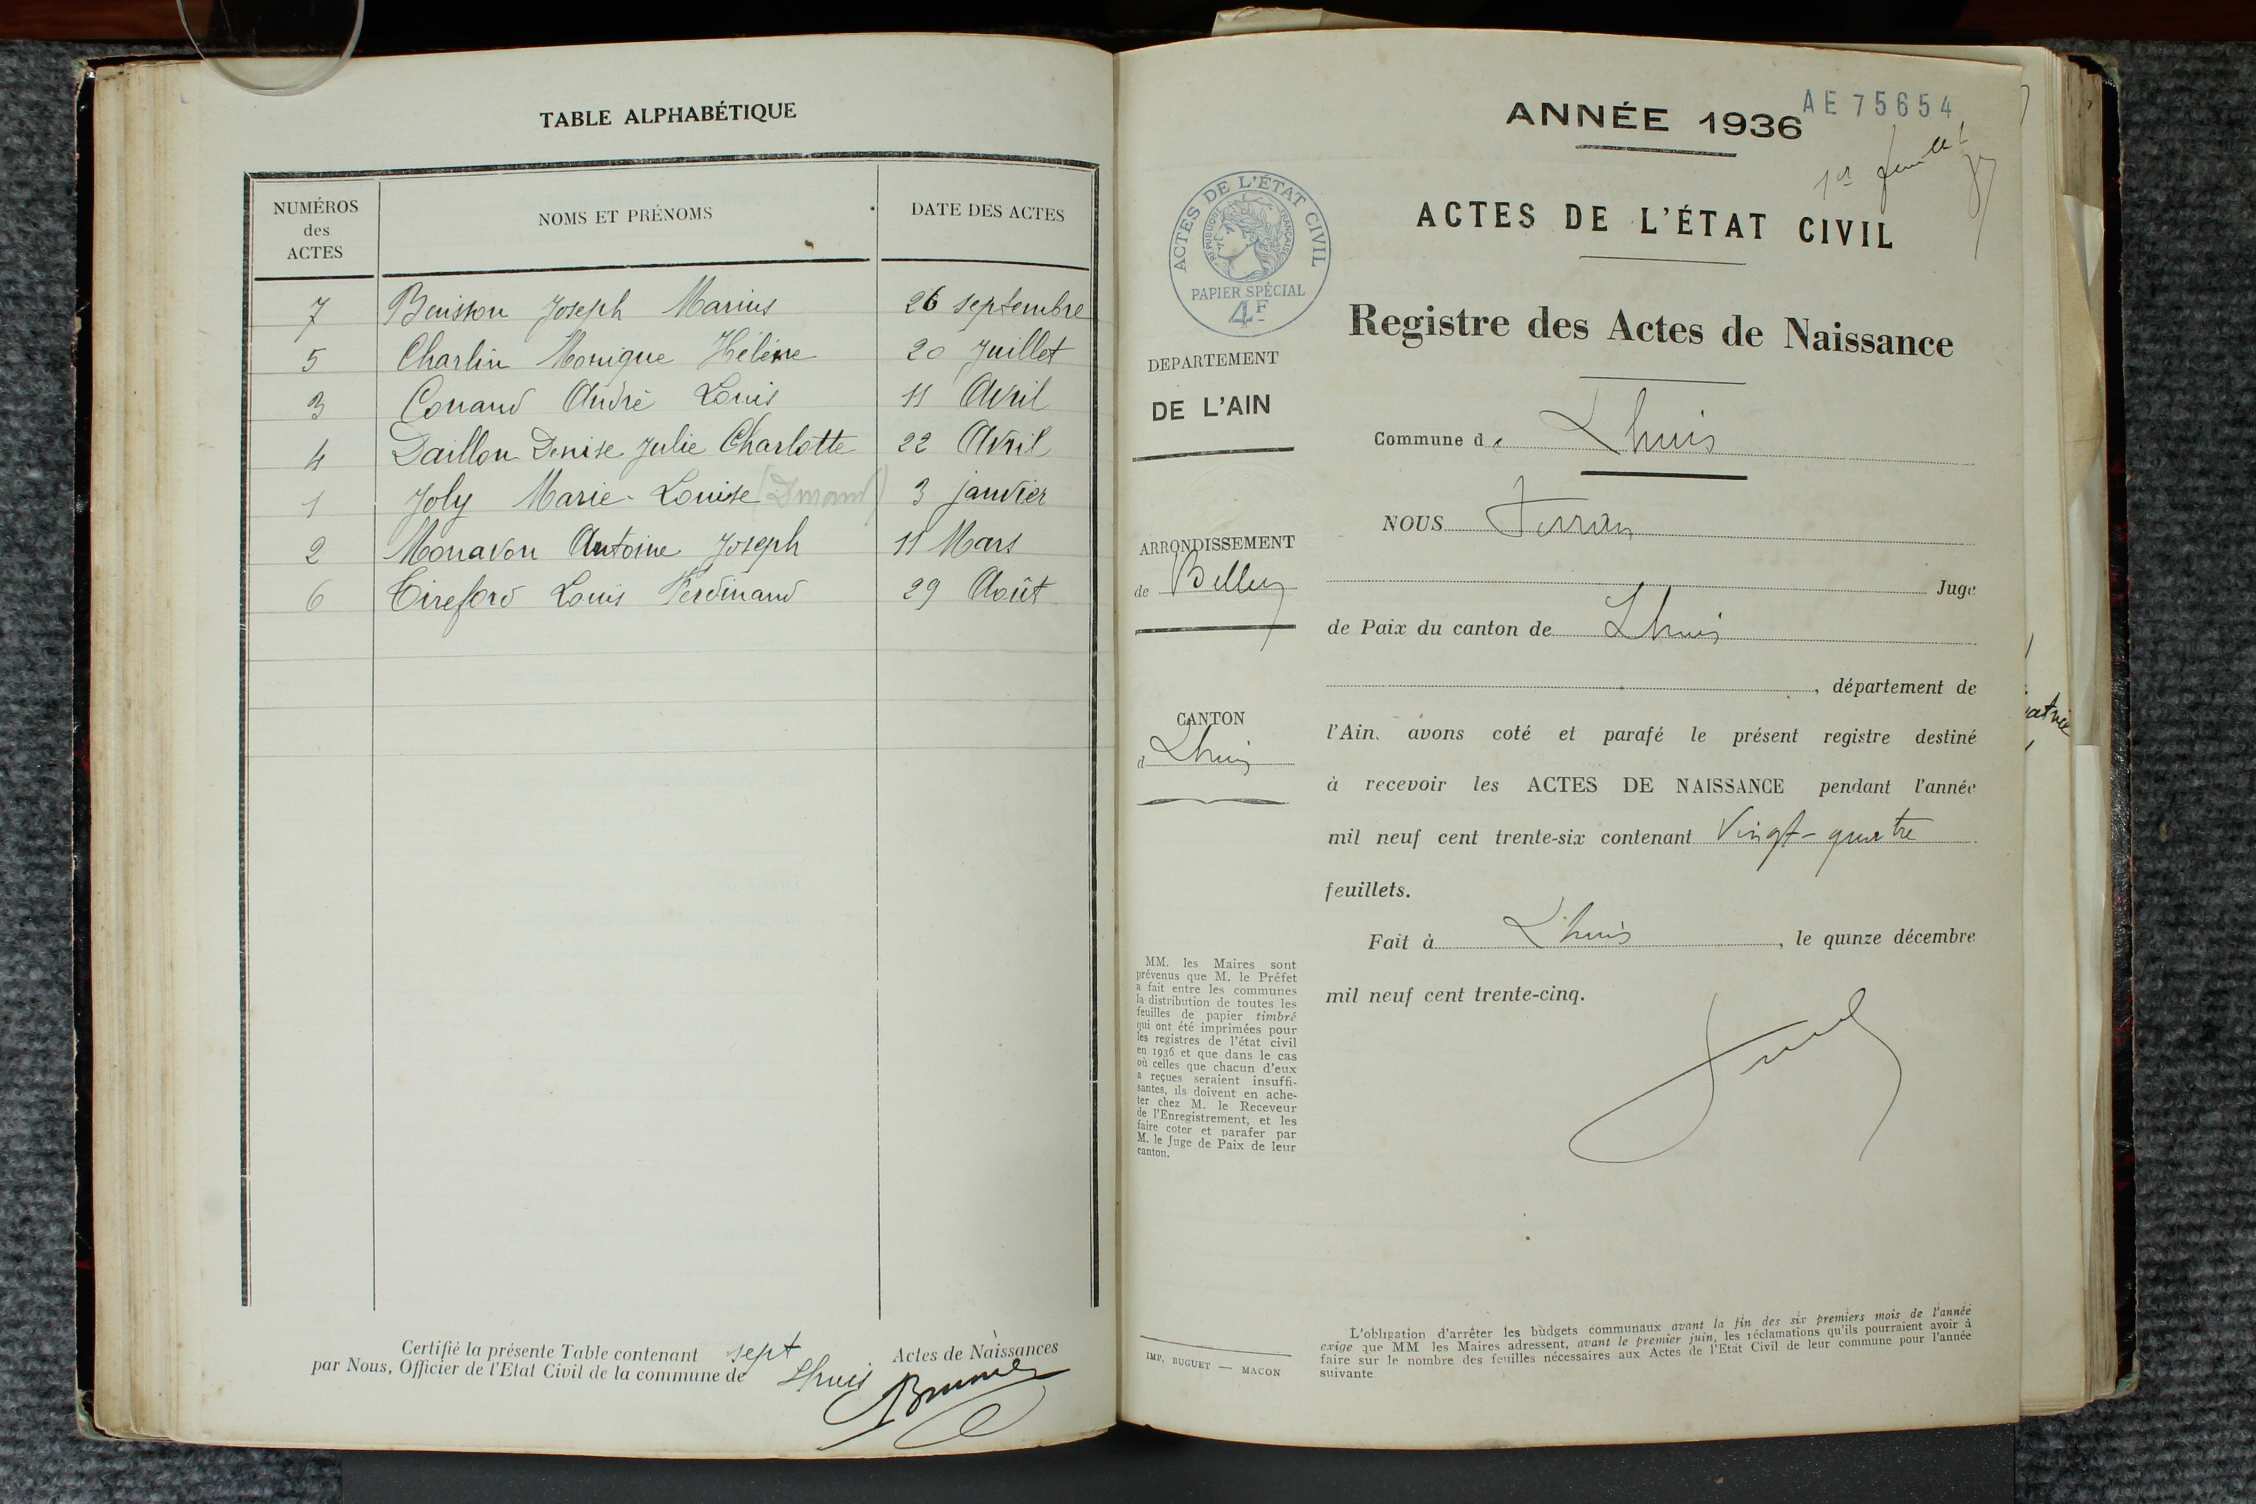 TABLE ALPHABÉTIQUE
NUMÉROS des ACTES NOMS ET PRÉNOMS DATE DES ACTES
7 Buisson Joseph Marius 26 septembre
5 Charlin Monique Hélène 20 Juillet
3 Conand André Louis 11 Avril
4 Daillon Denise Julie Charlotte 22 Avril
1 Joly Marie-Louise 3 janvier
2 Monavon Antoine Joseph 11 Mars
6 Tireford Louis Ferdinand 29 Août
Certifié la présente Table contenant sept Actes de Naissances
par Nous, Officier de l'Etat Civil de la commune de Lhuis
ANNÉE 1936
AE 75654
1er feuillet
ACTES DE L'ÉTAT CIVIL
RÉPUBLIQUE FRANÇAISE
PAPIER SPÉCIAL
4F
ACTES DE L'ÉTAT CIVIL
Registre des Actes de Naissance
DEPARTEMENT
DE L'AIN
ARRONDISSEMENT
de Belley
CANTON
d Lhuis
MM. les Maires sont
prévenus que M. le Préfet
a fait entre les communes
la distribution de toutes les
feuilles de papier timbré
qui ont été imprimées pour
les registres de l'état civil
en 1936 et que dans le cas
où celles que chacun d'eux
a reçues seraient insuffi-
santes, ils doivent en ache-
ter chez M. le Receveur
de l'Enregistrement, et les
faire coter et parafer par
M. le Juge de Paix de leur
canton.
IMP. BUGUET — MACON
Commune de Lhuis
NOUS
Juge
de Paix du canton de Lhuis
, département de
l'Ain. avons coté et parafé le présent registre destiné
à recevoir les ACTES DE NAISSANCE pendant l'année
mil neuf cent trente-six contenant Vingt-quatre
feuillets.
Fait à Lhuis, le quinze décembre
mil neuf cent trente-cinq.
L'obligation d'arrêter les budgets communaux avant la fin des six premiers mois de l'année
exige que MM les Maires adressent, avant le premier juin, les réclamations qu'ils pourraient avoir à
faire sur le nombre des feuilles nécessaires aux Actes de l'Etat Civil de leur commune pour l'année
suivante